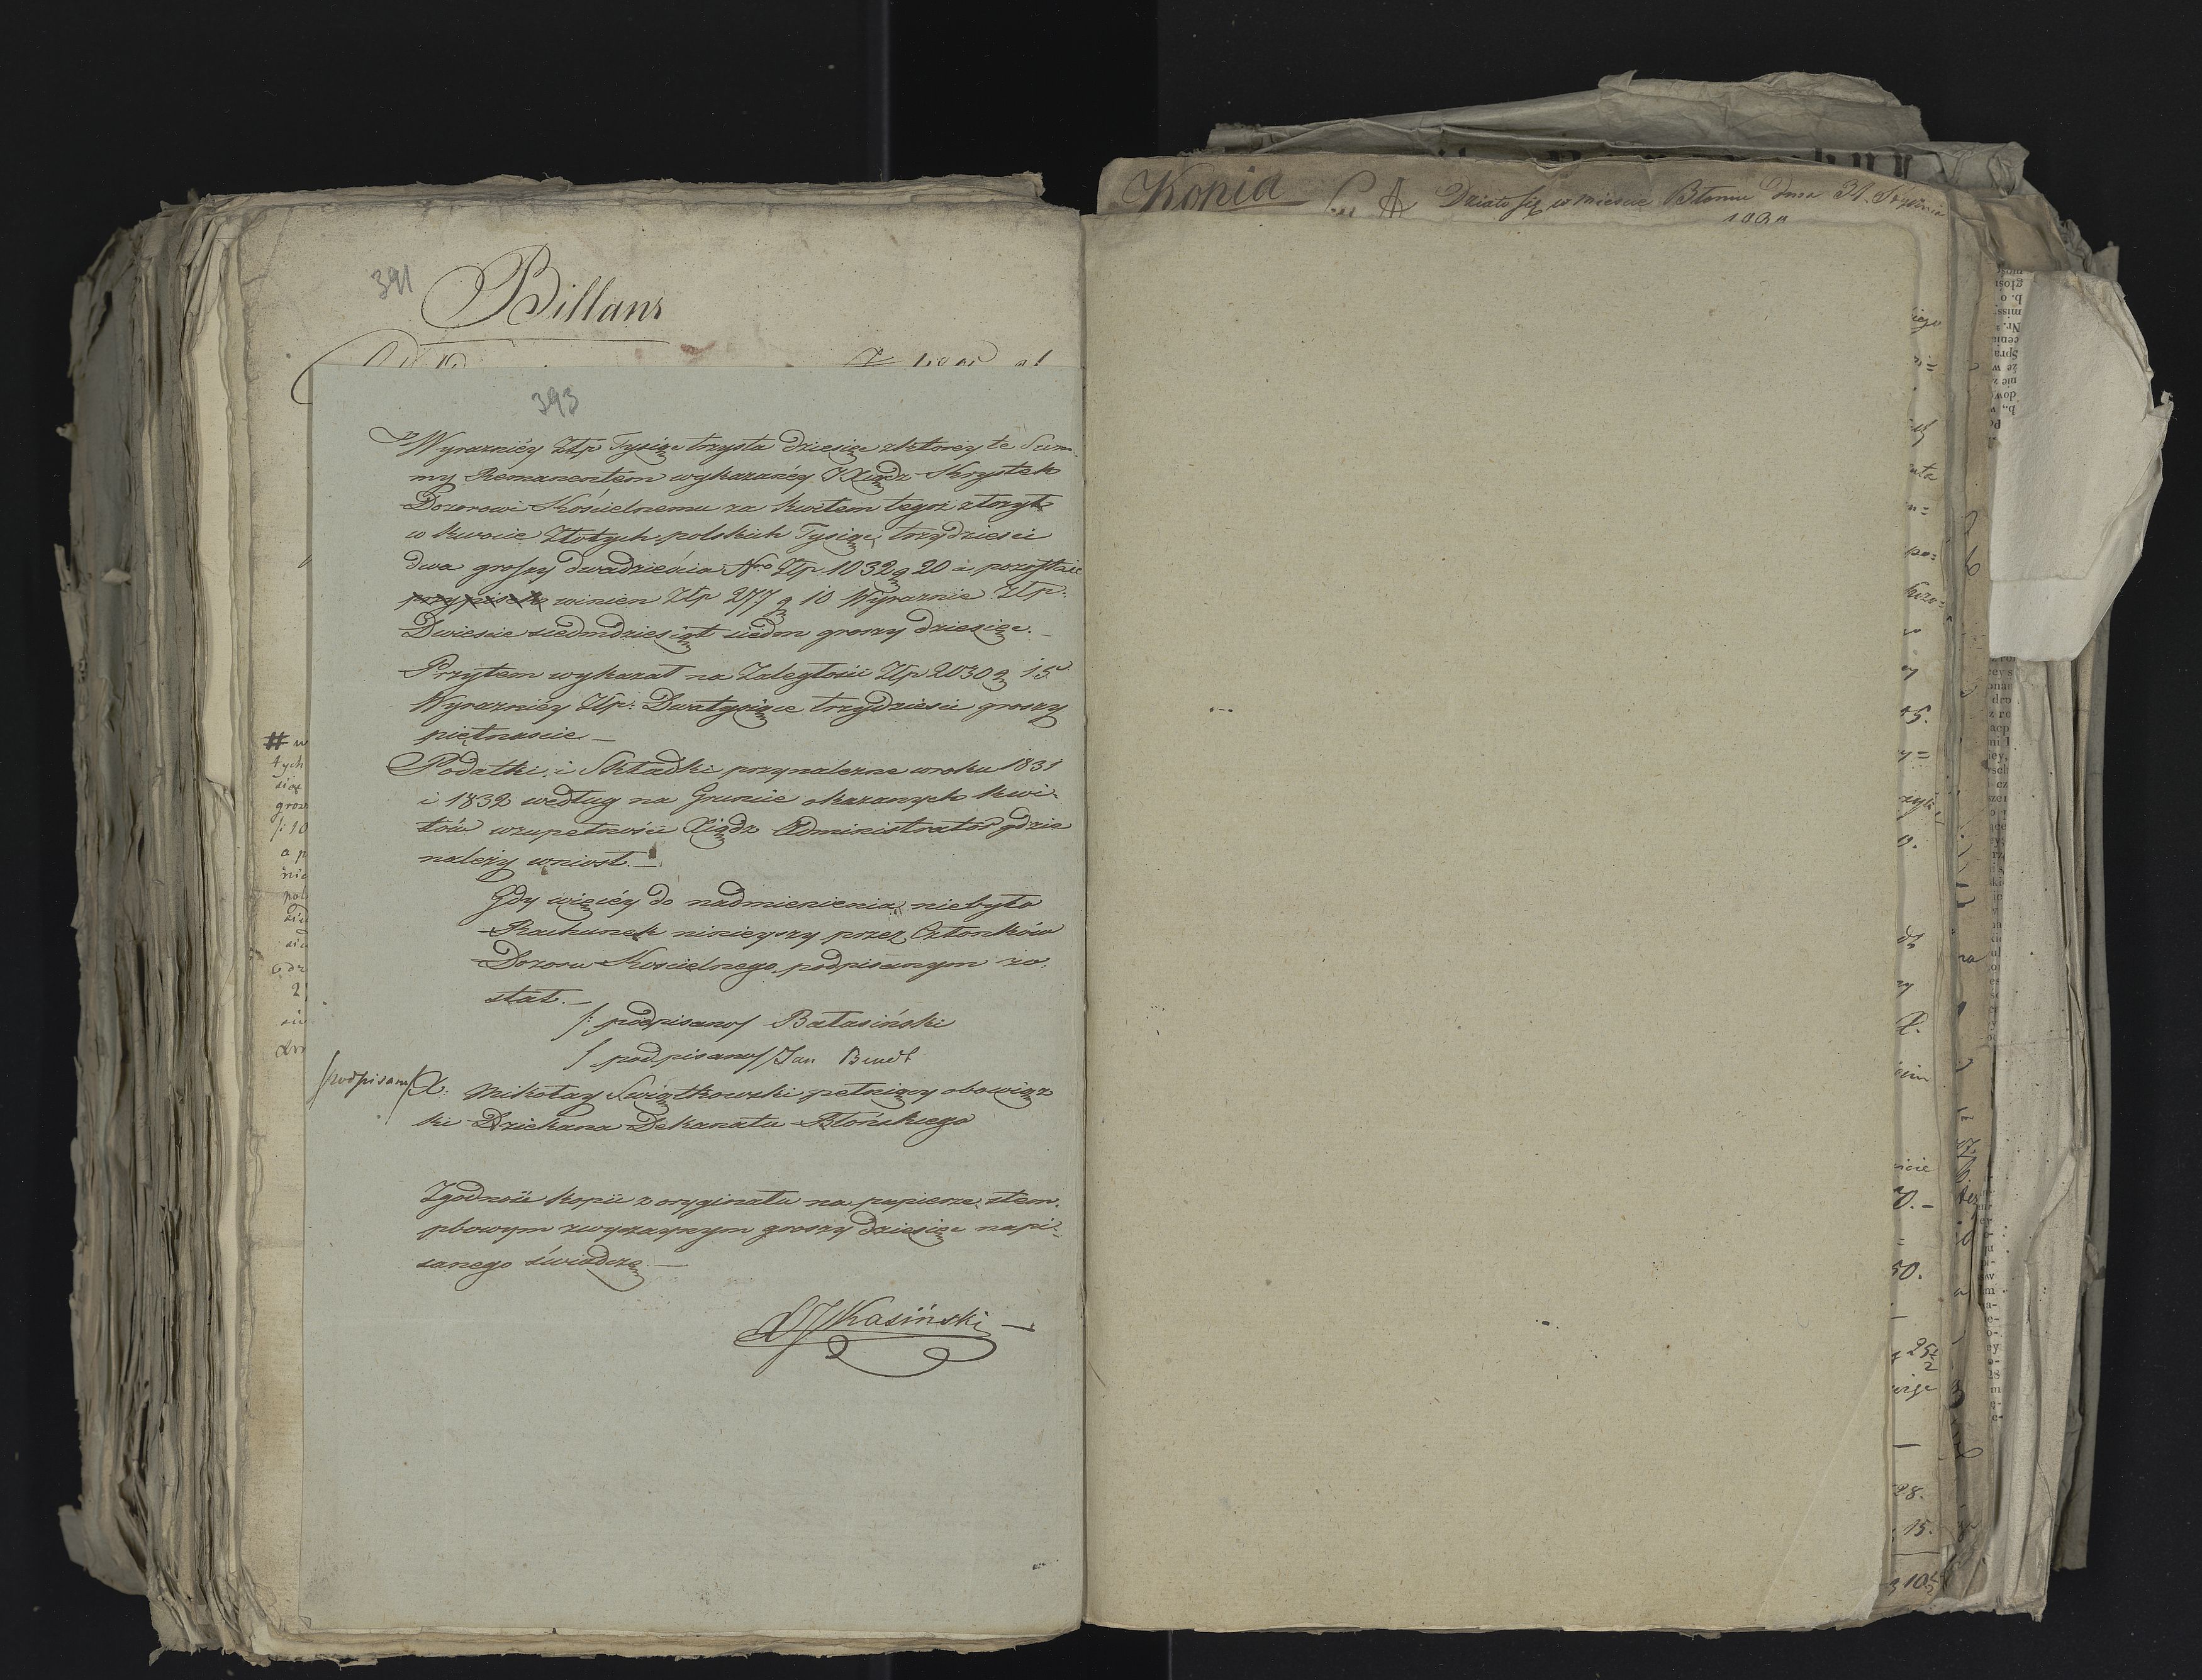 391
Billans
393
Wyrazniéy Złp Tysiąc trzysta dziesięc zktorey te Sum-
my Remanentem wykazanéy JXiądz Skrystek
Dozorowi Kościelnemu za kwitem tegoż złozył
w kwocie Złotych polskich Tysiąc, trzydzieści
dwa groszy dwadzieścia Nro Złp 1032 g 20 i pozostaie
winien Złp 277 g 10 Wyraznie Złp:
Dwieście siedmdziesiąt siedm groszy dziesięc.—
Przytem wykazał na Zaległości Złp 2030 g 15
Wyrazniéy Złp: Dwatysiące trzydzieści groszy
piętnaście —
Podatki i Składki przynalezne wroku 1831
i 1832 według na Gruncie okazanych kwi-
tów wzupełności Xiądz Administrator gdzie
należy wniosł.—
Gdy więcéy do nadmienienia niebyło
Rachunek ninieyszy przez Członków
Dozoru Kościelnego podpisanym zo-
stał.—
/: podpisano/ Bałasiński
/ podpisano/ Jan Bendt
/podpisano/ X: Mikołay Swiątkowski pełniący obowiąz
ki Dziekana Dekanatu Błońskiego
Zgodność kopii z oryginału na papierze stem-
plowym zwyczaynym groszy dziesięc napi-
sanego świadczę —
Kasiński —
Kopia
Działo się w miescie Błoniu dnia 31. Stycznia